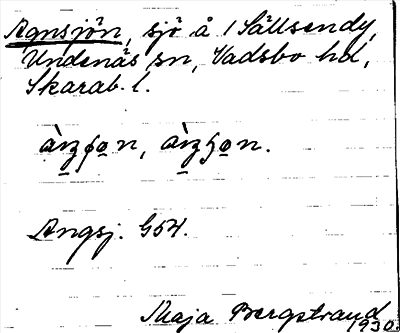 Agnsjön, sjö å 1 Sällsendy,
Undenäs sn, Vadsbo hd,
Skarab. l.
Angsj. G54.
Maja Bergstrand
1930.